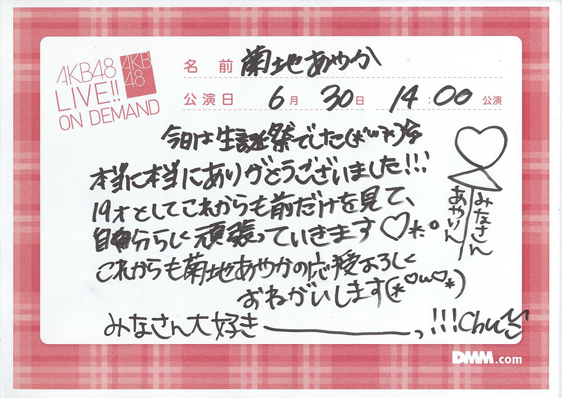 AKB48
LIVE!!
ON DEMAND
AKB
48
名 前 菊地あやか
公演日 6月 30日 14:00 公演
今日は生誕祭でした(*'ω'*)
本当に本当にありがとうございました!!!
19才としてこれからも前だけを見て、
自分らしく頑張っていきます♡*。
これからも菊地あやかの応援よろしく
おねがいします(*♡ω♡*)
みなさん大好き――――っ!!!Chu
みなさん
あやりん
DMM.com